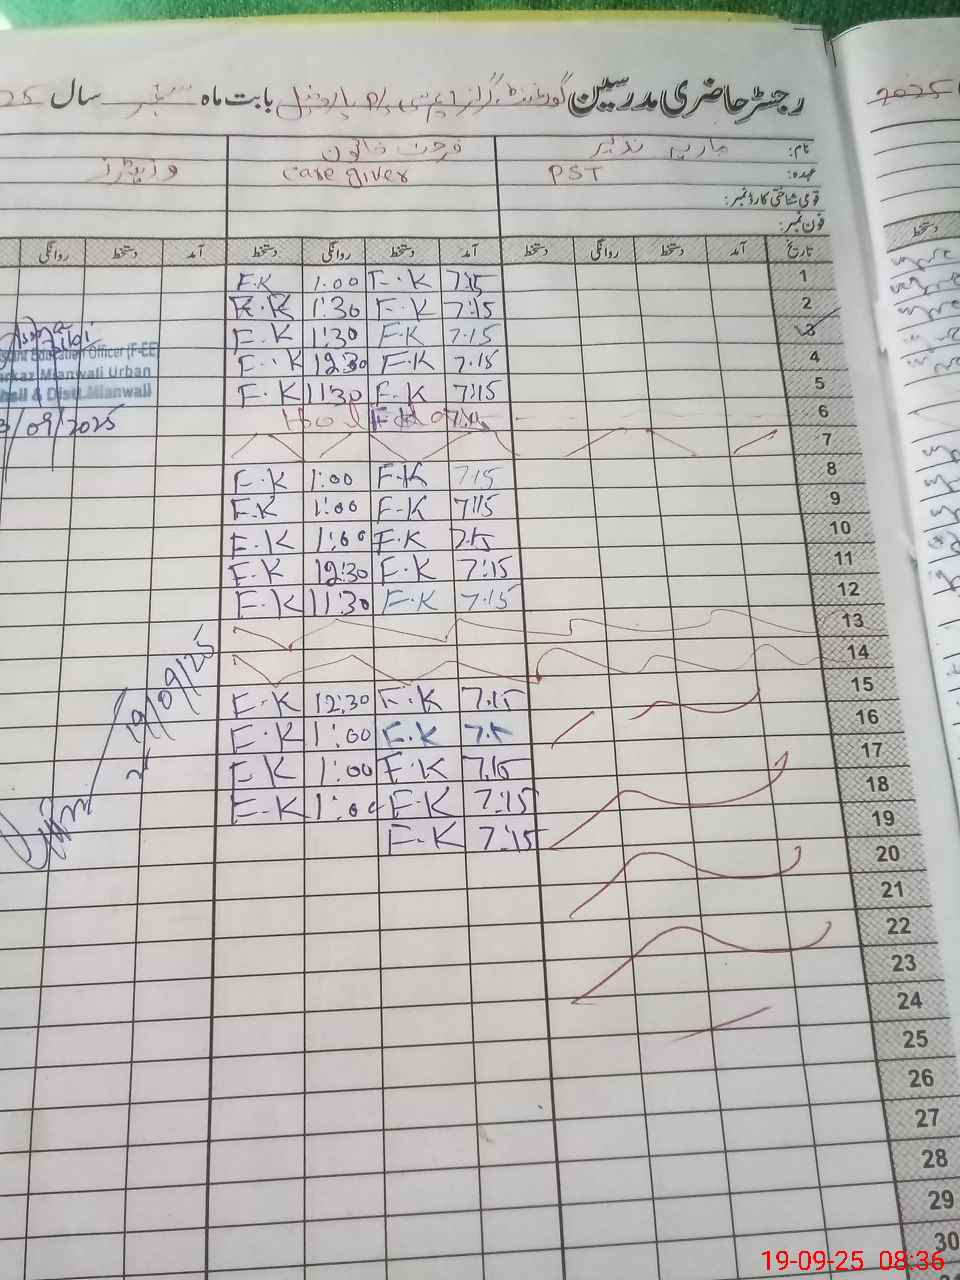 رجسٹر حاضری مدرسین گورنمنٹ گرلز بابت ماہ ستمبر سال 25
2025
نام: ماریہ نذیر فرحت خاتون
عہدہ: PST Care giver وزیٹرز
قومی شناختی کارڈ نمبر:
فون نمبر:
تاریخ آمد دستخط روانگی دستخط آمد دستخط روانگی دستخط آمد دستخط روانگی
دستخط
1 7:15 F.K 1:00 F.K
2 7:15 F.K 1:30 F.K
3 7:15 F.K 1:30 F.K
4 7:15 F.K 12:30 F.K
5 7:15 F.K 11:30 F.K
6
7
8 7:15 F.K 1:00 F.K
9 7:15 F.K 1:00 F.K
10 7:15 F.K 1:00 F.K
11 7:15 F.K 12:30 F.K
12 7:15 F.K 11:30 F.K
13
14
15 7:15 F.K 12:30 F.K
16 7:15 F.K 1:00 F.K
17 7:15 F.K 1:00 F.K
18 7:15 F.K 1:00 F.K
19 7:15 F.K
20
21
22
23
24
25
26
27
28
29
30
Education Officer (F-EE)
Markaz Mianwali Urban
& Distt. Mianwali
3/09/2025
19/09/25
19-09-25 08:36